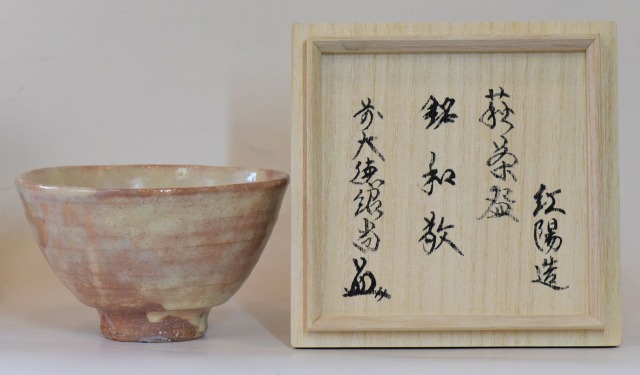 萩茶盌
紅陽造
銘 和敬
前大徳紹尚